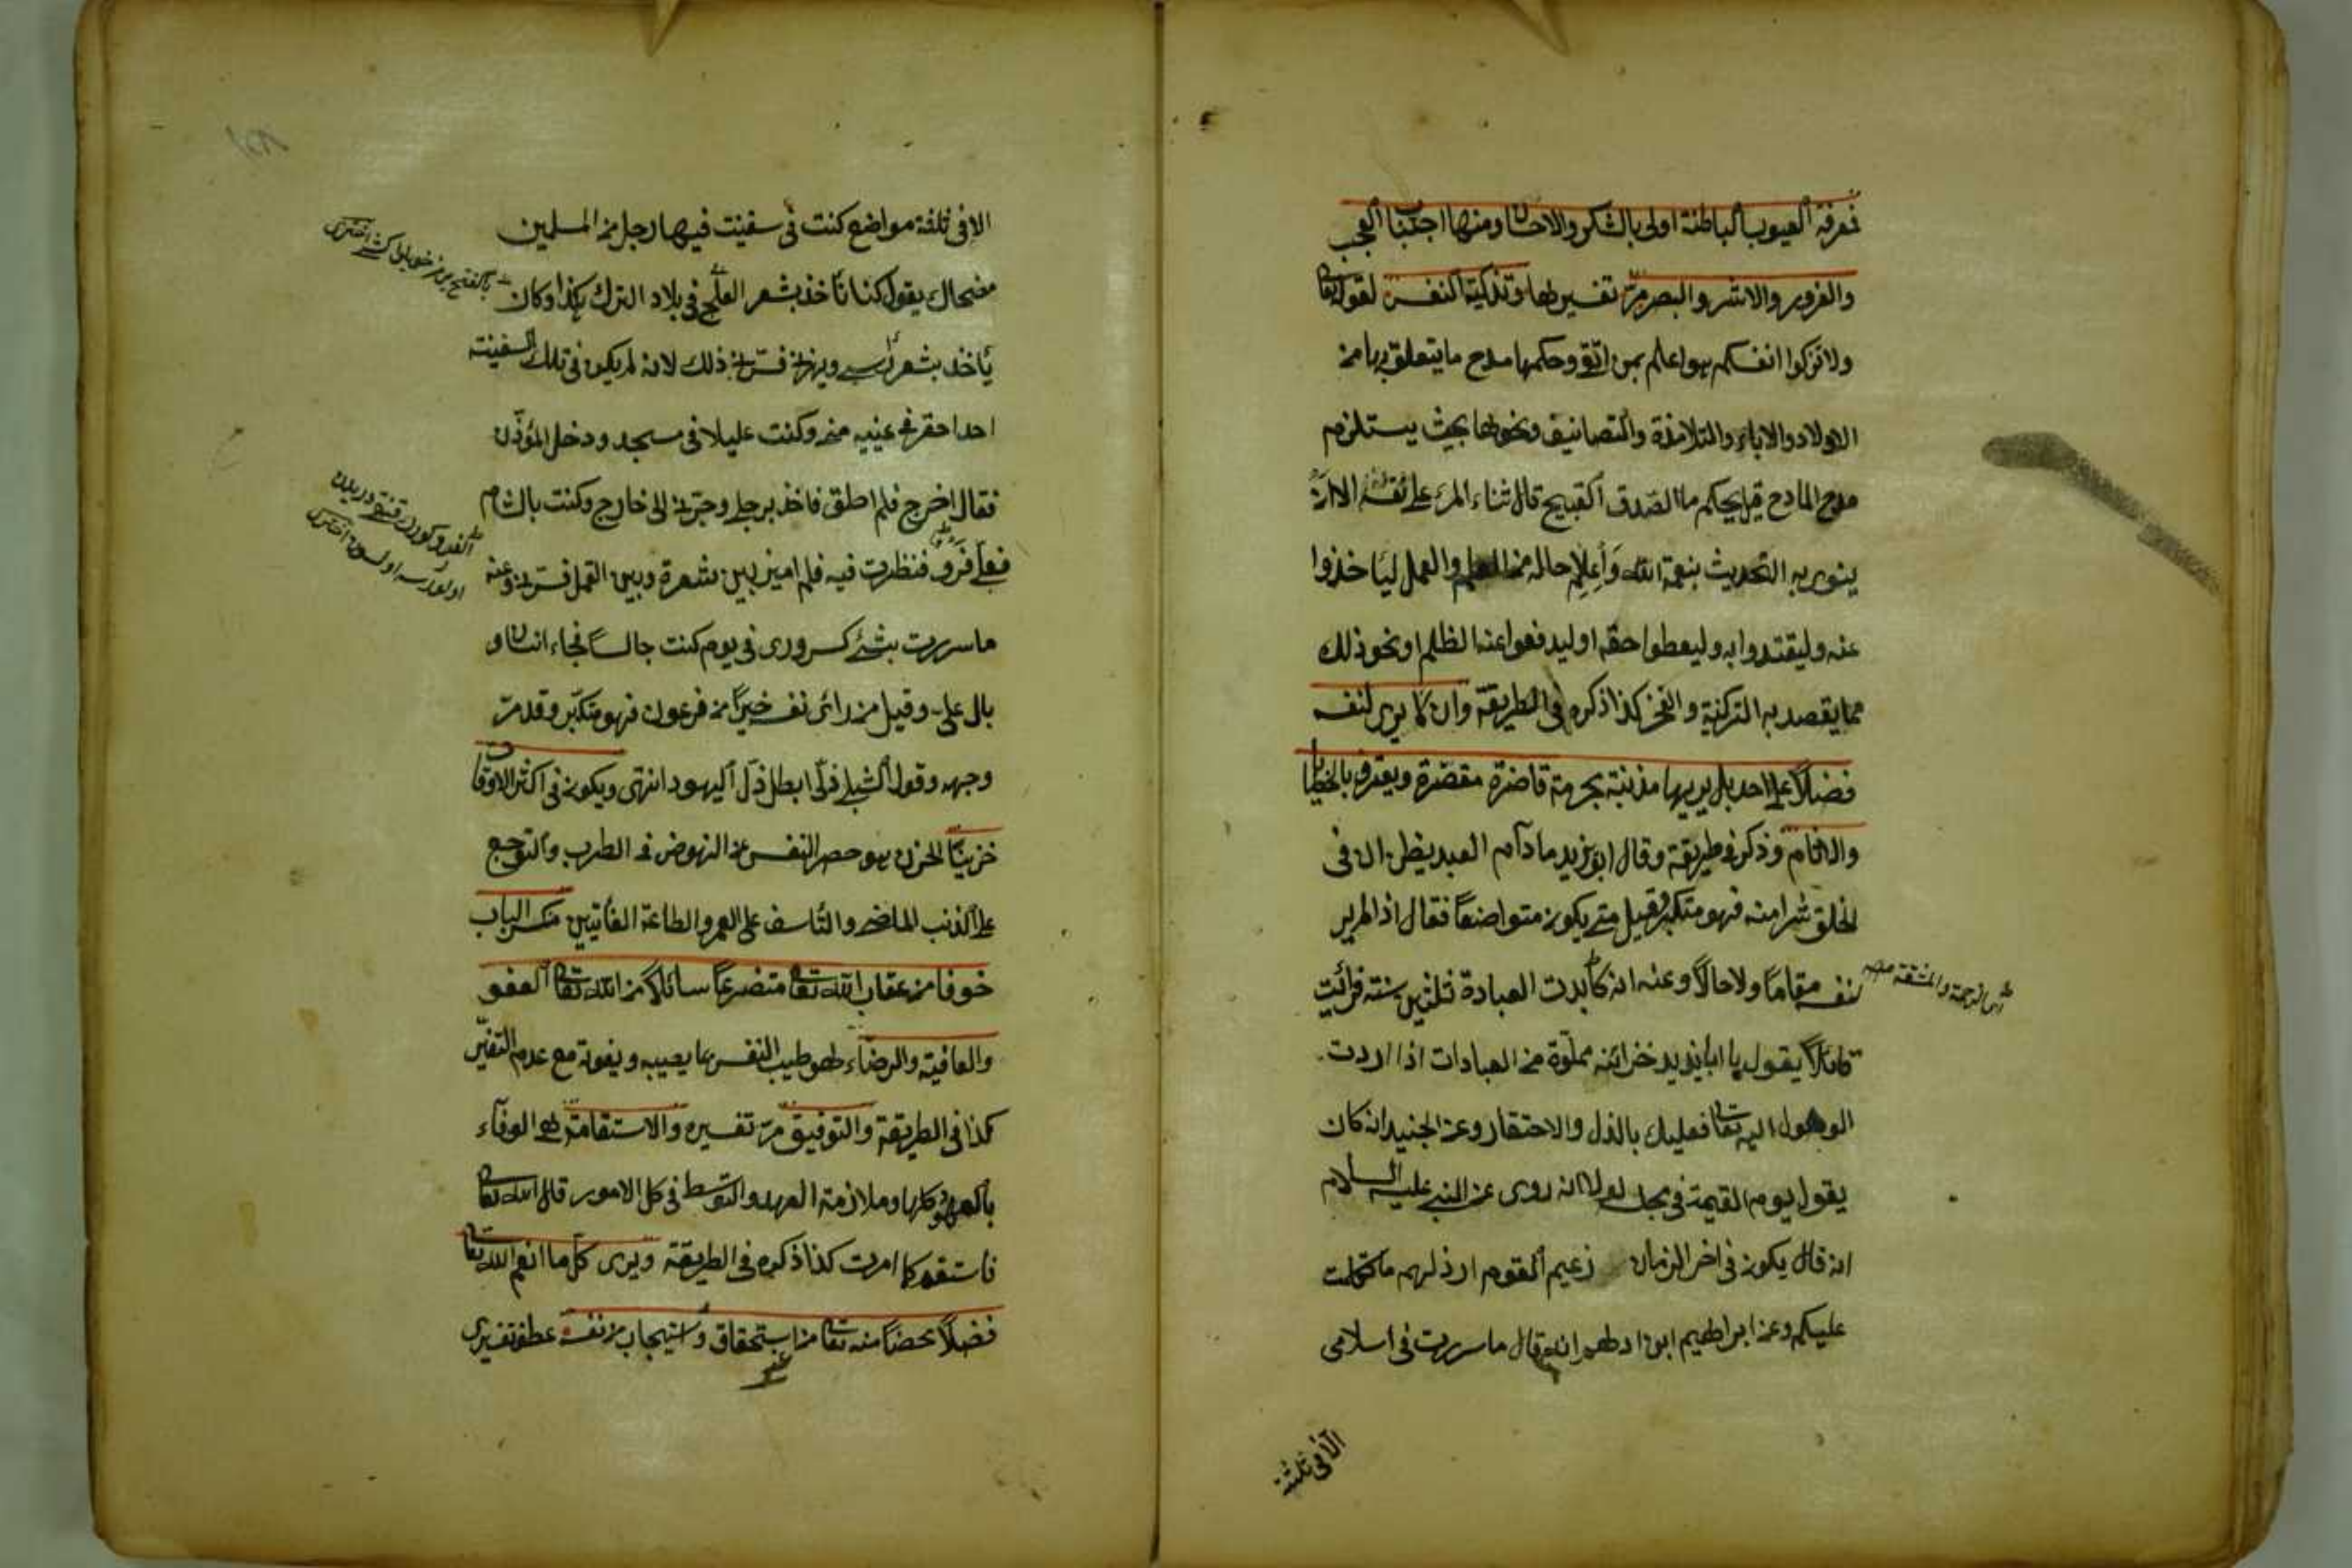 فمعرفة العيوب الباطنة اولى بالشكر والاحسان ومنها اجتناب العجب
والغرور والاشر والبصر مرّ تفسيرها وتزكية النفس لقوله تعا
ولا تزكوا انفسكم هو اعلم بمن اتقى وحكمها مدح ما يتعلق بها من
الاولاد والاباء والتلامذة والتصانيف ونحوها بحيث يستلزم
مدح المادح قيل لحكيم ما الصدق القبيح قال ثناء المرء على نفسه الا ان
ينوي به التحديث بنعمة الله وأعلام حاله من العلم والعمل ليأخذوا
عنه وليقتدوا به وليعطوا حقه او ليدفعوا عنه الظلم او نحو ذلك
مما يقصد به التزكية والفخر كذا ذكره في الطريقة وان لا يرى لنفسه
فضلاً على احد بل يريها مذنبة مجرمة قاصرة مقصرة ويعترف بالخطايا
والاثام وذكر في طريقة وقال ابو يزيد ما دام العبد يظن ان في
الخلق شرا منه فهو متكبر وقيل متى يكون متواضعاً فقال اذا لم ير
لنفسه مقاماً ولا حالاً وعنه انه كابدت العبادة ثلثين سنة فرأيت
قائلاً يقول يا ابا يزيد خزائنه مملوة من العبادات اذا اردت
الوصول اليه تعا فعليك بالذل والاحتقار وعن الجنيد انه كان
يقول يوم القيمة في مجلسه لولا انه روى عن النبي عليه السلام
انه قال يكون في اخر الزمان زعيم القوم ارذلهم ما تكلمت
عليكم وعن ابراهيم ابن ادهم انه قال ما سررت في اسلامي
اى الزحمة والمشقة منه
الا في ثلثة
الا في ثلثة مواضع كنت في سفينة فيها رجل من المسلمين
مضحاك يقول كنا نأخذ بشعر العلج في بلاد الترك هكذا وكان
يأخذ بشعر رأسي ويهزني فسرني ذلك لانه لم يكن في تلك السفينة
احد احقر في عينيه مني وكنت عليلا في مسجد ودخل المؤذن
فقال اخرج فلم اطق فاخذ برجلي وجرّني الى خارج وكنت بالشام
فعلي فرو فنظرت فيه فلم اميز بين شعره وبين القمل فسرني وعنه
ما سررت بشئ كسروري في يوم كنت جالساً فجاء انسان و
بال علي وقيل من رأى نفسه خيراً من فرعون فهو متكبر وقد مرّ
وجهه وقول الشبلي ذلي ابطل ذل اليهود انتهى ويكون في اكثر الاوقات
حزيناً الحزن هو حصر النفس عن النهوض في الطرب والتوجع
على الذنب الماضي والتأسف على العمر والطاعة الفائتين منكسر الباب
خوفا من عقاب الله تعا متضرعاً سائلاً من الله تعا العفو
والعافية والرضاء هو طيب النفس بما يصيبه ويفوته مع عدم التغيّر
كذا في الطريقة والتوفيق مرّ تفسيره والاستقامة هي الوفاء
بالعهود كلها وملازمة العهد والتوسط في كل الامور قال الله تعا
فاستقم كما امرت كذا ذكره في الطريقة ويرى كل ما انعم الله تعا
فضلاً محضاً منه تعا من استحقاق واستيجاب من نفسه عطف تفسيري
غير